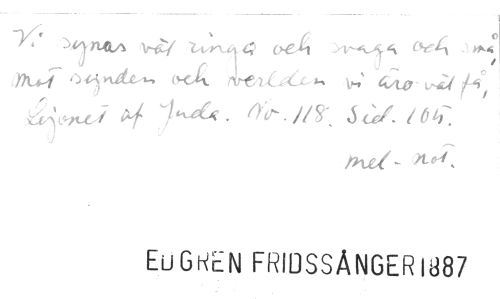 Vi synas vät ringa och svaga och små,
mot synden och verlden vi äro vät få,
Lejonet af Juda. No. 118. Sid. 105.
mel-not.
EDGREN FRIDSSÅNGER 1887